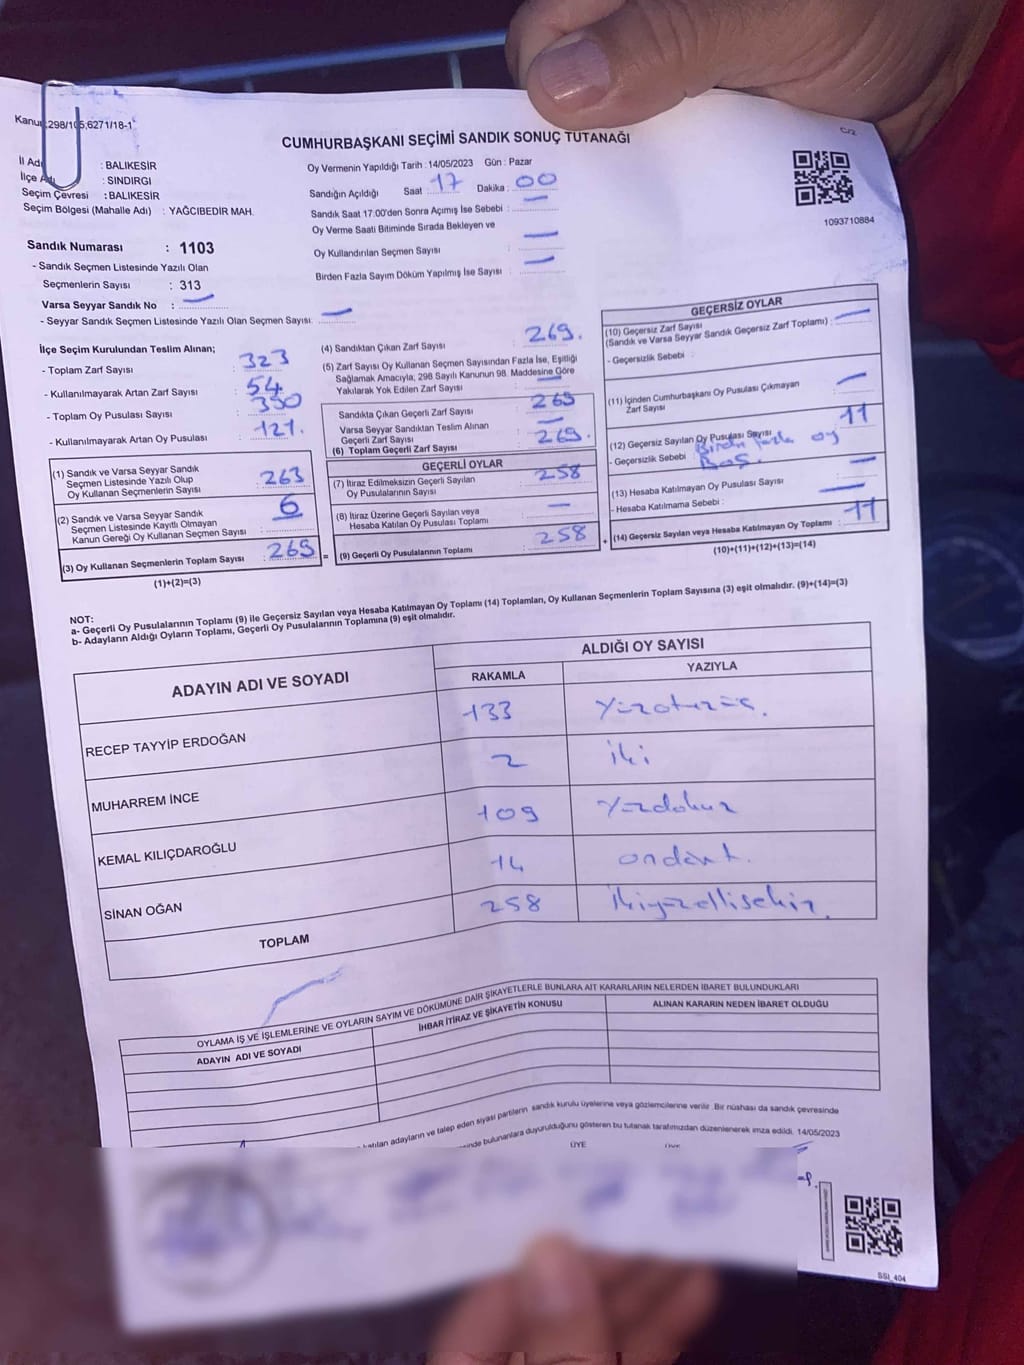 Kanun:298/105,6271/18-1
C/2
CUMHURBAŞKANI SEÇİMİ SANDIK SONUÇ TUTANAĞI
İl Adı : BALIKESİR
İlçe Adı : SINDIRGI
Seçim Çevresi : BALIKESİR
Seçim Bölgesi (Mahalle Adı) : YAĞCIBEDİR MAH.
Sandık Numarası : 1103
- Sandık Seçmen Listesinde Yazılı Olan
Seçmenlerin Sayısı : 313
Varsa Seyyar Sandık No : —
- Seyyar Sandık Seçmen Listesinde Yazılı Olan Seçmen Sayısı: —
Oy Vermenin Yapıldığı Tarih : 14/05/2023 Gün : Pazar
Sandığın Açıldığı Saat : 17 Dakika : 00
Sandık Saat 17:00'den Sonra Açımış İse Sebebi : —
Oy Verme Saati Bitiminde Sırada Bekleyen ve
Oy Kullandırılan Seçmen Sayısı : —
Birden Fazla Sayım Döküm Yapılmış İse Sayısı : —
1093710884
İlçe Seçim Kurulundan Teslim Alınan;
- Toplam Zarf Sayısı : 323
- Kullanılmayarak Artan Zarf Sayısı : 54
- Toplam Oy Pusulası Sayısı : 390
- Kullanılmayarak Artan Oy Pusulası : 121.
(1) Sandık ve Varsa Seyyar Sandık
Seçmen Listesinde Yazılı Olup
Oy Kullanan Seçmenlerin Sayısı : 263
(2) Sandık ve Varsa Seyyar Sandık
Seçmen Listesinde Kayıtlı Olmayan
Kanun Gereği Oy Kullanan Seçmen Sayısı : 6
(3) Oy Kullanan Seçmenlerin Toplam Sayısı : 269 =
(1)+(2)=(3)
(4) Sandıktan Çıkan Zarf Sayısı : 269.
(5) Zarf Sayısı Oy Kullanan Seçmen Sayısından Fazla İse, Eşitliği
Sağlamak Amacıyla; 298 Sayılı Kanunun 98. Maddesine Göre
Yakılarak Yok Edilen Zarf Sayısı : —
Sandıkta Çıkan Geçerli Zarf Sayısı : 269
Varsa Seyyar Sandıktan Teslim Alınan
Geçerli Zarf Sayısı : —
(6) Toplam Geçerli Zarf Sayısı : 269.
GEÇERLİ OYLAR
(7) İtiraz Edilmeksizin Geçerli Sayılan
Oy Pusulalarının Sayısı : 258
(8) İtiraz Üzerine Geçerli Sayılan veya
Hesaba Katılan Oy Pusulası Toplamı : —
(9) Geçerli Oy Pusulalarının Toplamı : 258 +
GEÇERSİZ OYLAR
(10) Geçersiz Zarf Sayısı
(Sandık ve Varsa Seyyar Sandık Geçersiz Zarf Toplamı) : —
- Geçersizlik Sebebi :
(11) İçinden Cumhurbaşkanı Oy Pusulası Çıkmayan
Zarf Sayısı : —
(12) Geçersiz Sayılan Oy Pusulası Sayısı : 11
- Geçersizlik Sebebi : Birden fazla oy
Boş.
(13) Hesaba Katılmayan Oy Pusulası Sayısı : —
- Hesaba Katılmama Sebebi : —
(14) Geçersiz Sayılan veya Hesaba Katılmayan Oy Toplamı : 11
(10)+(11)+(12)+(13)=(14)
NOT:
a- Geçerli Oy Pusulalarının Toplamı (9) ile Geçersiz Sayılan veya Hesaba Katılmayan Oy Toplamı (14) Toplamları, Oy Kullanan Seçmenlerin Toplam Sayısına (3) eşit olmalıdır. (9)+(14)=(3)
b- Adayların Aldığı Oyların Toplamı, Geçerli Oy Pusulalarının Toplamına (9) eşit olmalıdır.
ADAYIN ADI VE SOYADI
ALDIĞI OY SAYISI
RAKAMLA YAZIYLA
RECEP TAYYİP ERDOĞAN 133 Yüzotuzüç.
MUHARREM İNCE 2 iki
KEMAL KILIÇDAROĞLU 109 Yüzdokuz
SİNAN OĞAN 14 ondört.
TOPLAM 258 ikiyüzellisekiz.
OYLAMA İŞ VE İŞLEMLERİNE VE OYLARIN SAYIM VE DÖKÜMÜNE DAİR ŞİKAYETLERLE BUNLARA AİT KARARLARIN NELERDEN İBARET BULUNDUKLARI
ADAYIN ADI VE SOYADI
İHBAR İTİRAZ VE ŞİKAYETİN KONUSU
ALINAN KARARIN NEDEN İBARET OLDUĞU
katılan adayların ve talep eden siyasi partilerin sandık kurulu üyelerine veya gözlemcilerine verilir. Bir nüshası da sandık çevresinde
bulunanlara duyurulduğunu gösteren bu tutanak tarafımızdan düzenlenerek imza edildi. 14/05/2023
ÜYE
SSI_404